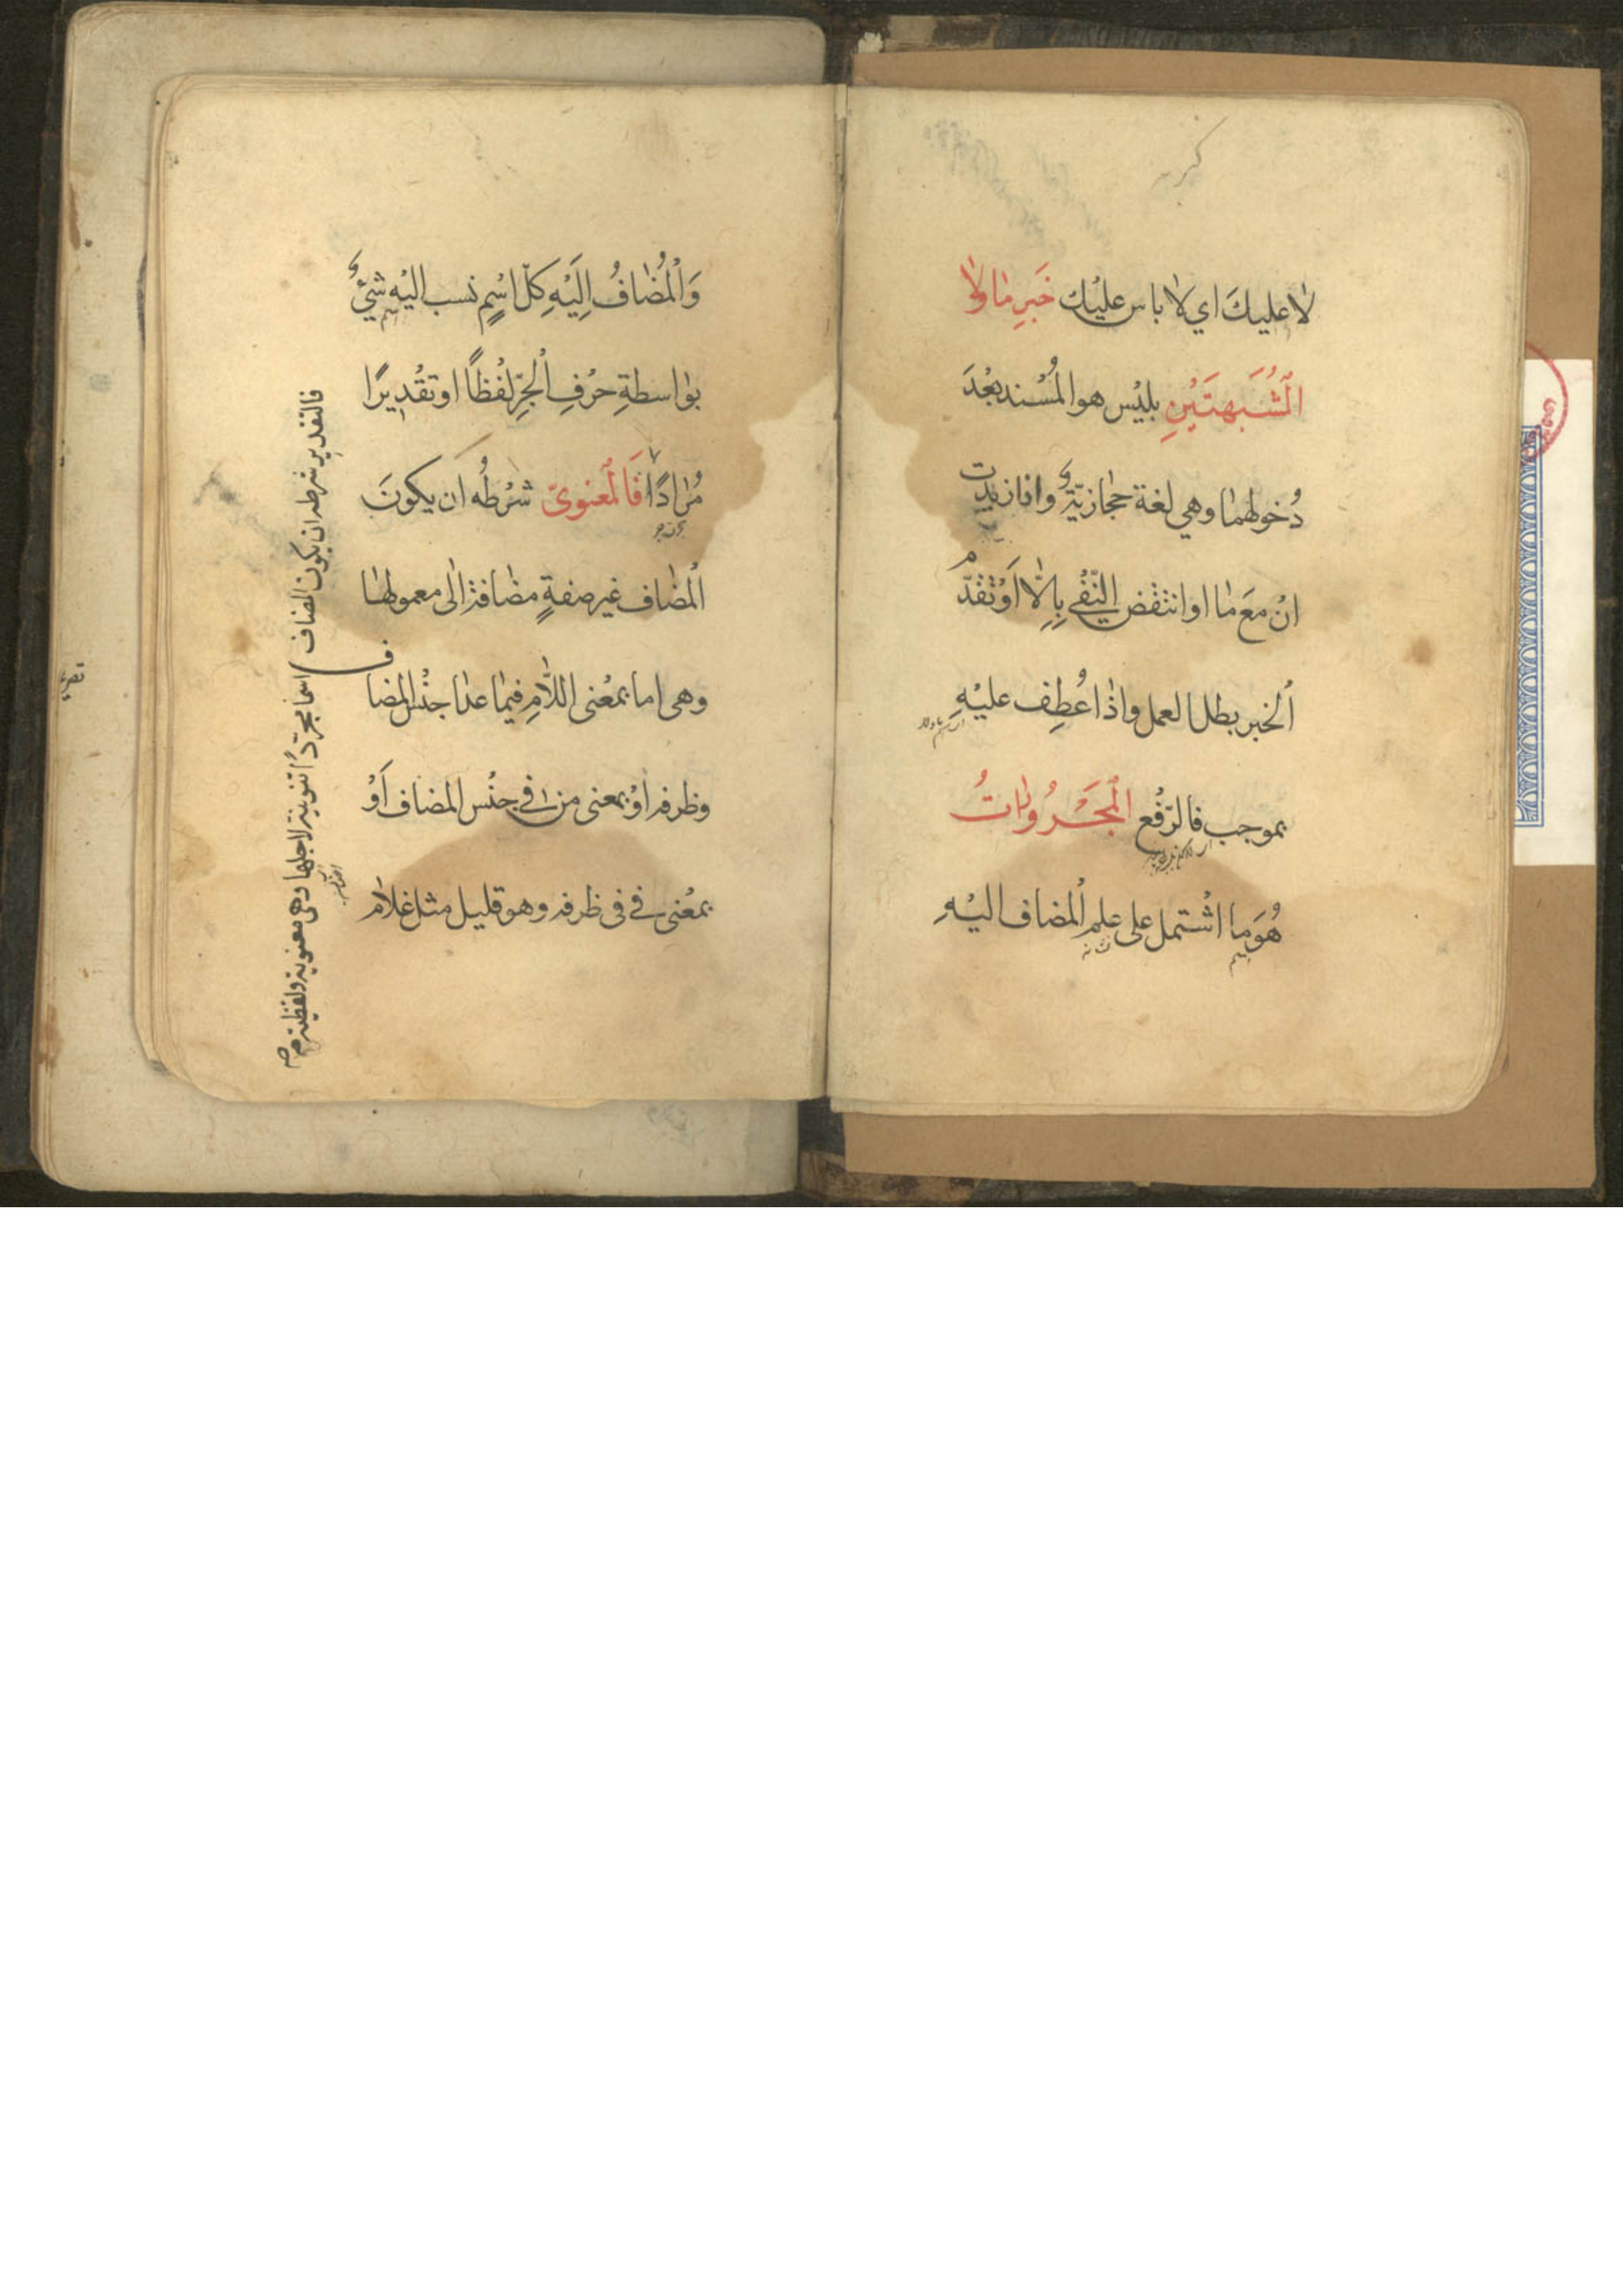 لا عليكَ اي لا باس عليْك خَبرِ ما ولا
الْمُشَبهتَيْنِ بليْس هو المُسْند بعْدَ
دُخولهما وهي لغة حجازيّةٌ واذا زيدت
انْ معَ ما او انتقض النّفْى بِاِلّا اَوْ تقدّم
الْخبر بطل العمل واذا عُطِف عليْهِ
بموجب فالرّفْع الْمَجْرُوراتُ
هُوَ ما اشْتمل على علم المضاف اليْهِ
وَالْمُضافُ اِلَيْهِ كلّ اسْمٍ نسب اليْهِ شيْءٌ
بواسطةِ حرْفِ الْجرِّ لفْظًا او تقْدِيرًا
مُرادًا فَالْمعنوىّ شرْطُه ان يكونَ
المضاف غير صفةٍ مضافة الى معمولها
وهى اما بمعْنى اللّامِ فيما عدا جنْس المضاف
وظرفه اوْ بمعنى من فى جنْس المضاف اَوْ
بمعْنى فى فى ظرفه وهو قليل مثل غلام
فالتقدير شرطه ان يكون المضاف اسما مجرّدًا تنوينه لاجلها وهى معنوية ولفظية صح